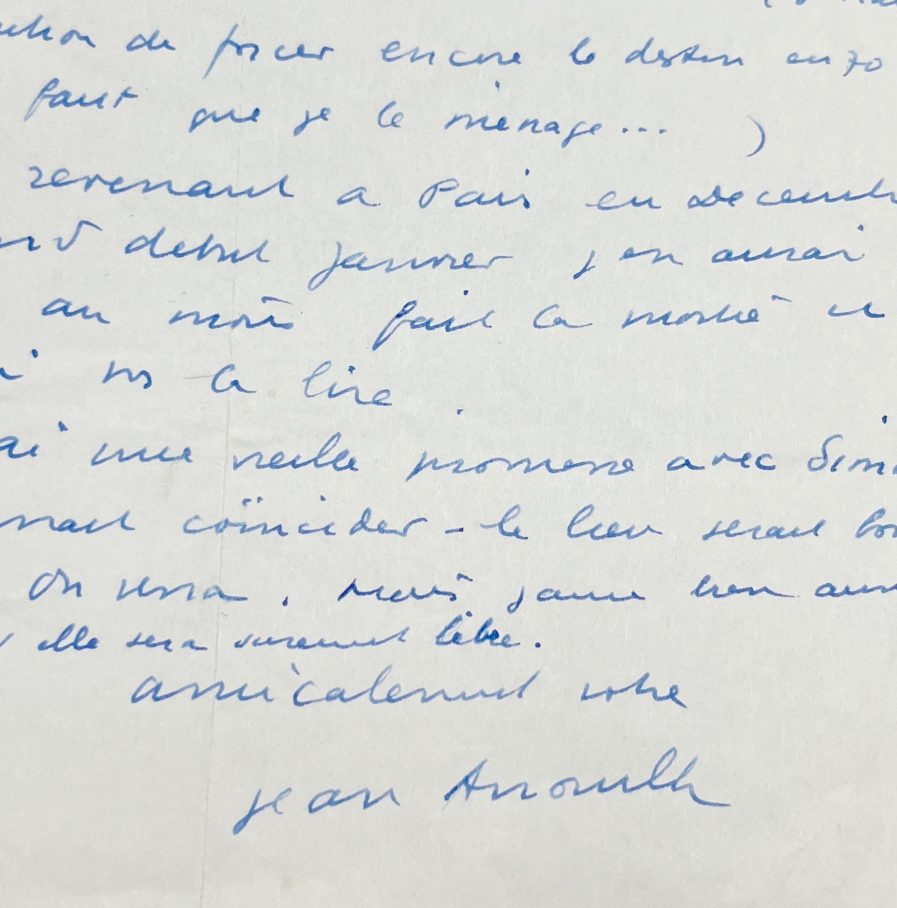 de forcer encore le destin en 70
faut que je le ménage... )
revenant a Paris en Decemb
debut janvier j'en aurai
au moins fait la moitié et
la lire.
ai une vieille promesse avec Sim
coïncider - le lieu serait bo
On verra. Mais j'aime bien aus
elle sera surement libre.
amicalement votre
jean Anouilh